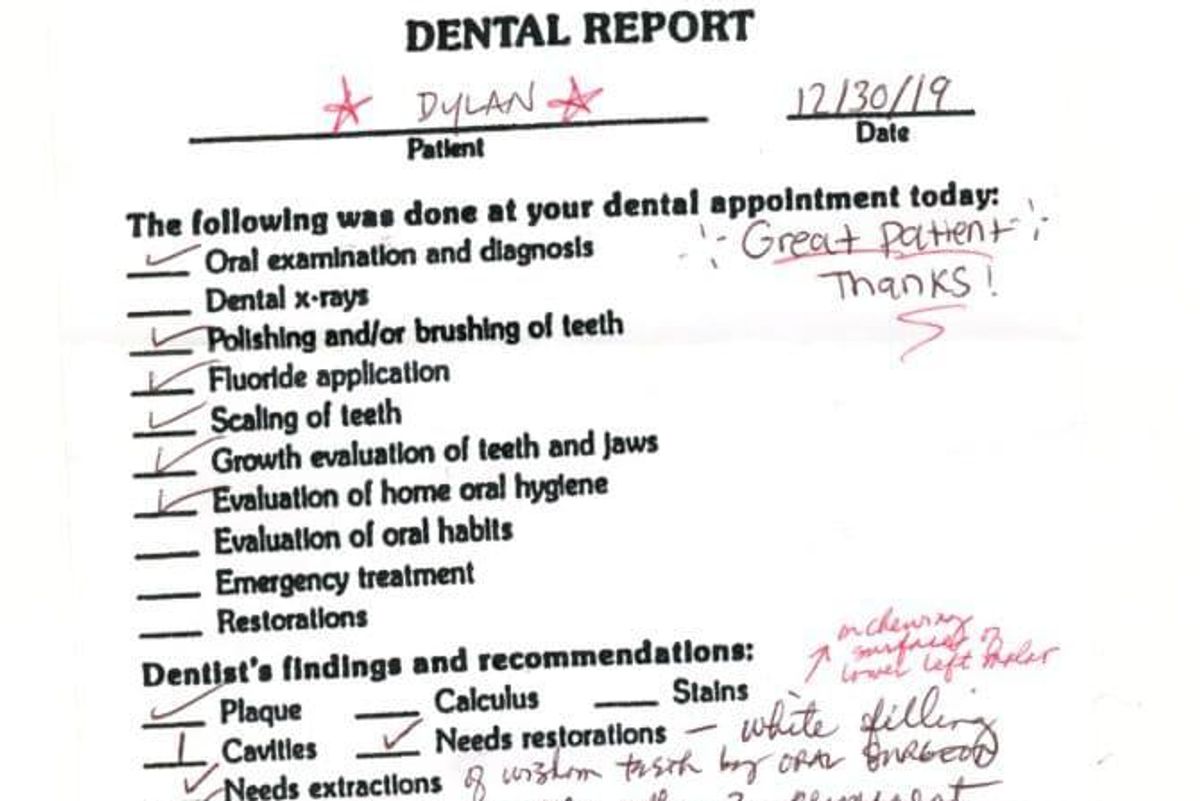 DENTAL REPORT
DYLAN 12/30/19
Patient Date
The following was done at your dental appointment today:
Oral examination and diagnosis
Great Patient
Dental x-rays
Thanks!
Polishing and/or brushing of teeth
Fluoride application
Scaling of teeth
Growth evaluation of teeth and jaws
Evaluation of home oral hygiene
Evaluation of oral habits
Emergency treatment
Restorations
on chewing
surface of
lower left molar
Dentist's findings and recommendations:
Plaque Calculus Stains
1 Cavities Needs restorations - white filling
Needs extractions of wisdom teeth by ORAL SURGEON